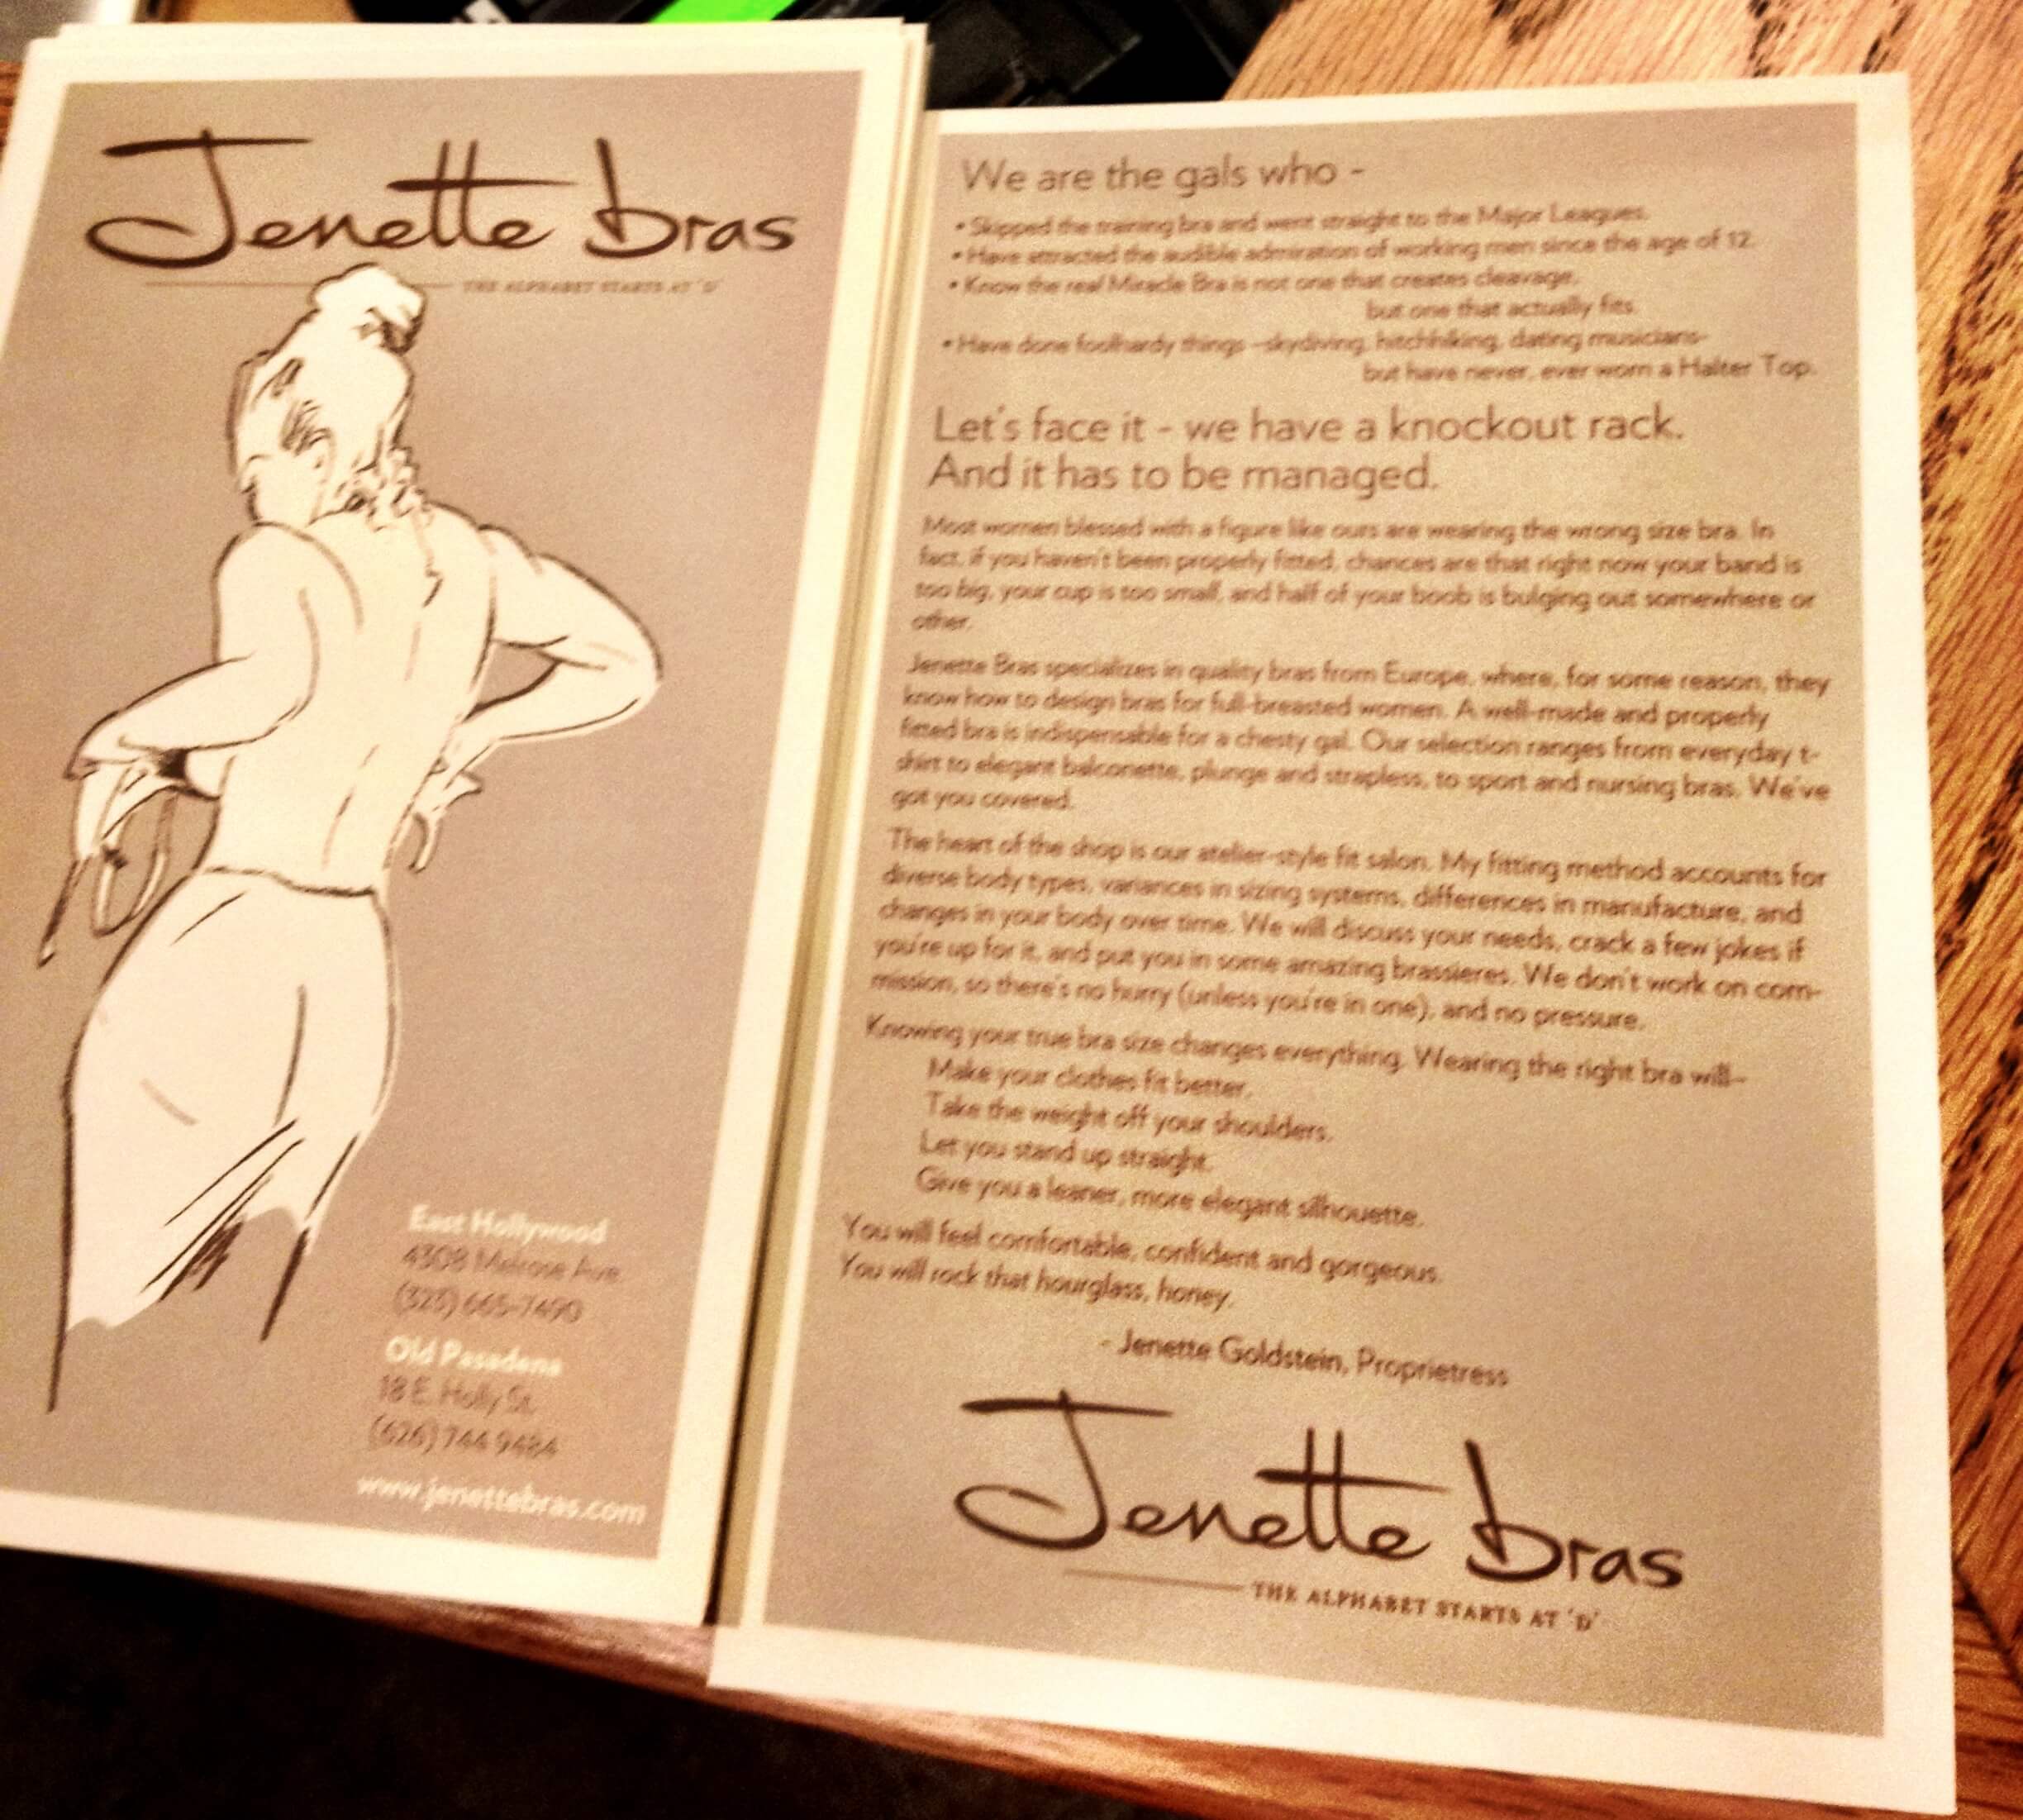 Jenette bras
THE ALPHABET STARTS AT 'D'
East Hollywood
4308 Melrose Ave.
(323) 665-7490
Old Pasadena
18 E. Holly St.
(626) 744 9484
www.jenettebras.com
We are the gals who -
• Skipped the training bra and went straight to the Major Leagues.
• Have attracted the audible admiration of working men since the age of 12.
• Know the real Miracle Bra is not one that creates cleavage,
but one that actually fits.
• Have done foolhardy things –skydiving, hitchhiking, dating musicians–
but have never, ever worn a Halter Top.
Let's face it - we have a knockout rack.
And it has to be managed.
Most women blessed with a figure like ours are wearing the wrong size bra. In
fact, if you haven't been properly fitted, chances are that right now your band is
too big, your cup is too small, and half of your boob is bulging out somewhere or
other.
Jenette Bras specializes in quality bras from Europe, where, for some reason, they
know how to design bras for full-breasted women. A well-made and properly
fitted bra is indispensable for a chesty gal. Our selection ranges from everyday t-
shirt to elegant balconette, plunge and strapless, to sport and nursing bras. We've
got you covered.
The heart of the shop is our atelier-style fit salon. My fitting method accounts for
diverse body types, variances in sizing systems, differences in manufacture, and
changes in your body over time. We will discuss your needs, crack a few jokes if
you're up for it, and put you in some amazing brassieres. We don't work on com-
mission, so there's no hurry (unless you're in one), and no pressure.
Knowing your true bra size changes everything. Wearing the right bra will–
Make your clothes fit better.
Take the weight off your shoulders.
Let you stand up straight.
Give you a leaner, more elegant silhouette.
You will feel comfortable, confident and gorgeous.
You will rock that hourglass, honey.
- Jenette Goldstein, Proprietress
Jenette bras
THE ALPHABET STARTS AT 'D'